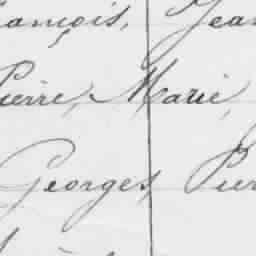 ançois, Jean
Pierre, Marie,
Georges, Pier